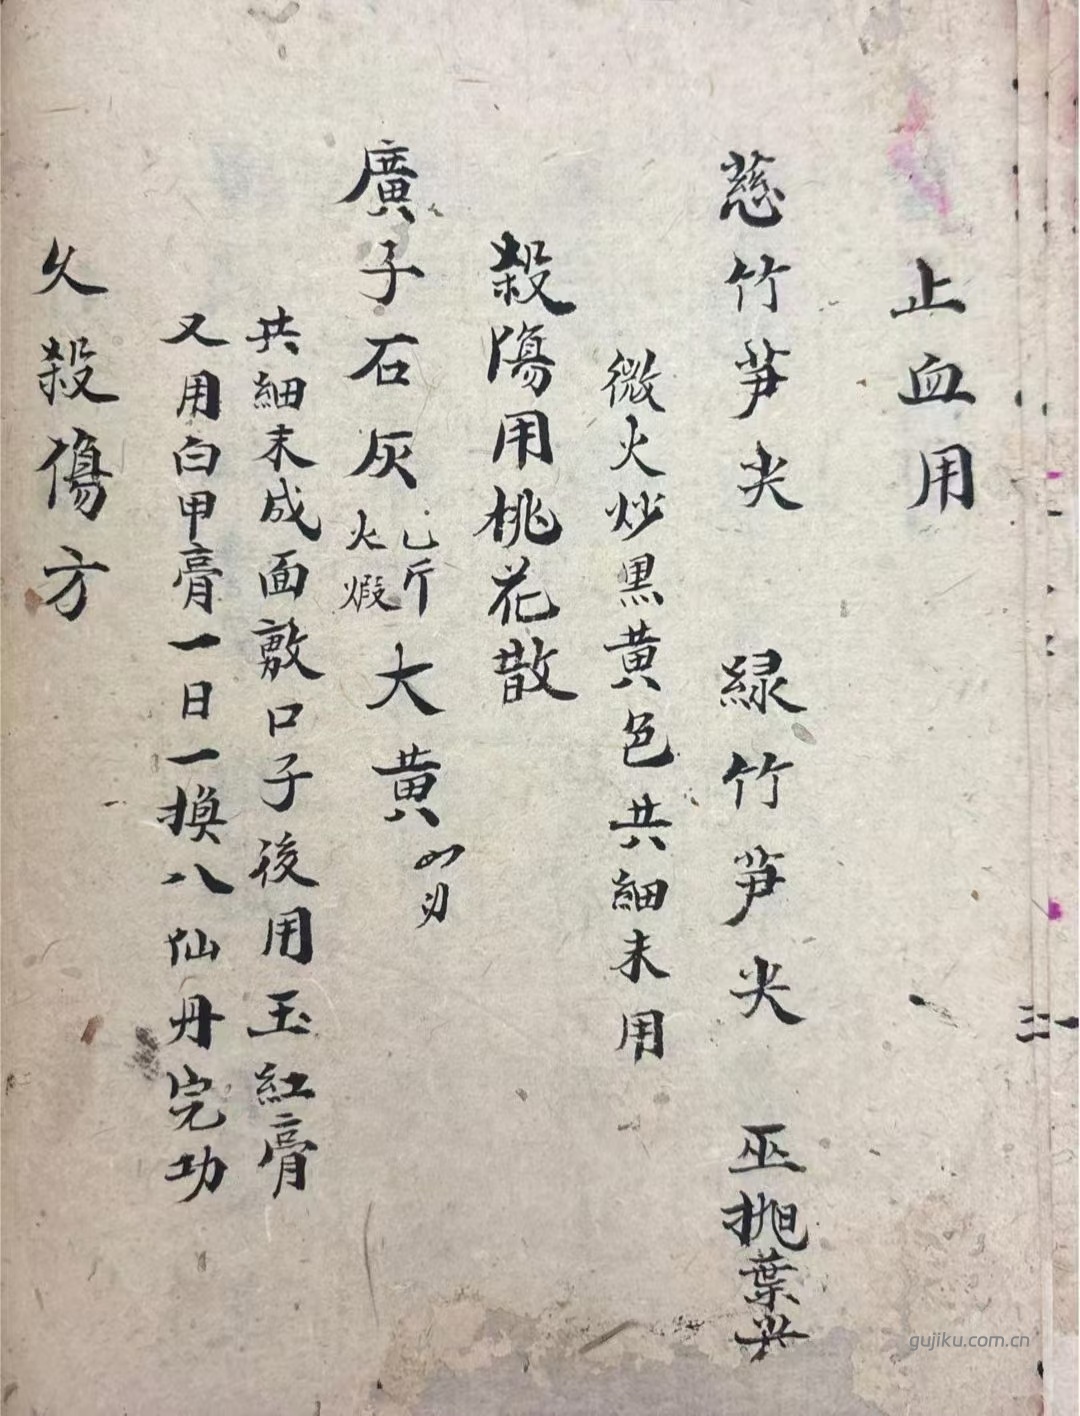 止血用
慈竹笋尖 緑竹笋尖 巫抛葉尖
微火炒黒黄色共細末用
殺傷用桃花散
廣子石灰 乙斤 火煅 大黄
共細末成面敷口子後用玉紅膏
又用白甲膏一日一换八仙丹完功
久殺傷方
gujiku.com.cn